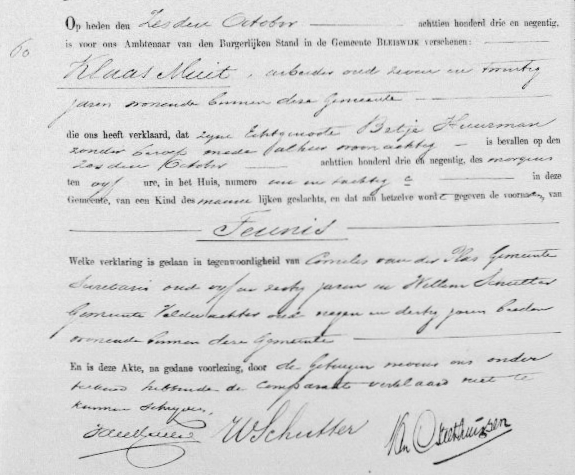 Op heden den Zesden October achttien honderd drie en negentig,
60
is voor ons Ambtenaar van den Burgerlijken Stand in de Gemeente BLEISWIJK verschenen:
Klaas Muit, arbeider oud zeven en twintig
jaren wonende binnen deze Gemeente
die ons heeft verklaard, dat zyne Echtgenoote Betje Huurman
zonder beroep mede alhier woonachtig is bevallen op den
Zesden October achttien honderd drie en negentig, des morgens
ten vyf ure, in het Huis, numero een en tachtig c in deze
Gemeente, van een Kind des mannelijken geslachts, en dat aan hetzelve wordt gegeven de voornaam, van
Teunis
Welke verklaring is gedaan in tegenwoordigheid van Cornelis van der Plas Gemeente
Secretaris oud vyf en dertig jaren en Willem Schutter
Gemeente Veldwachter oud negen en dertig jaren beiden
wonende binnen deze Gemeente
En is deze Akte, na gedane voorlezing, door de Getuigen nevens ons onder
teekend hebbende de Comparant verklaard niet te
kunnen schryven.
WSchutter